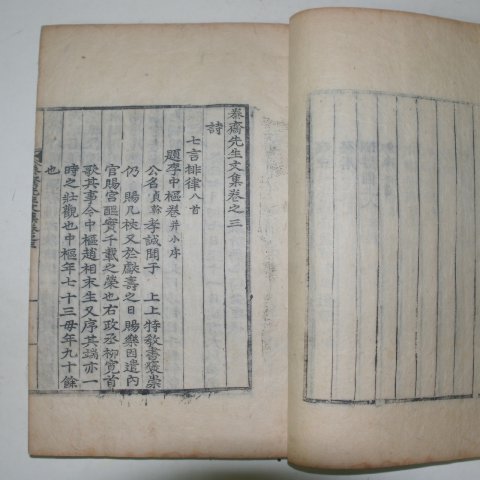 泰齋先生文集卷之三
詩
七言排律八首
題李中樞卷并小序
公名貞幹孝誠聞于 上上特敎書褒崇
仍 賜几杖又於獻壽之日 賜樂因遣內
官賜宮醞實千載之榮也右政丞柳寬首
歌其事今中樞趙相末生又序其端亦一
時之壯觀也中樞年七十三母年九十餘
也